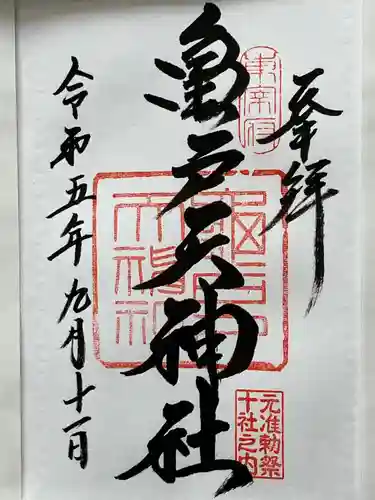 奉拝
東宰府
亀戸天神社
元准勅祭
十社之内
令和五年九月十一日